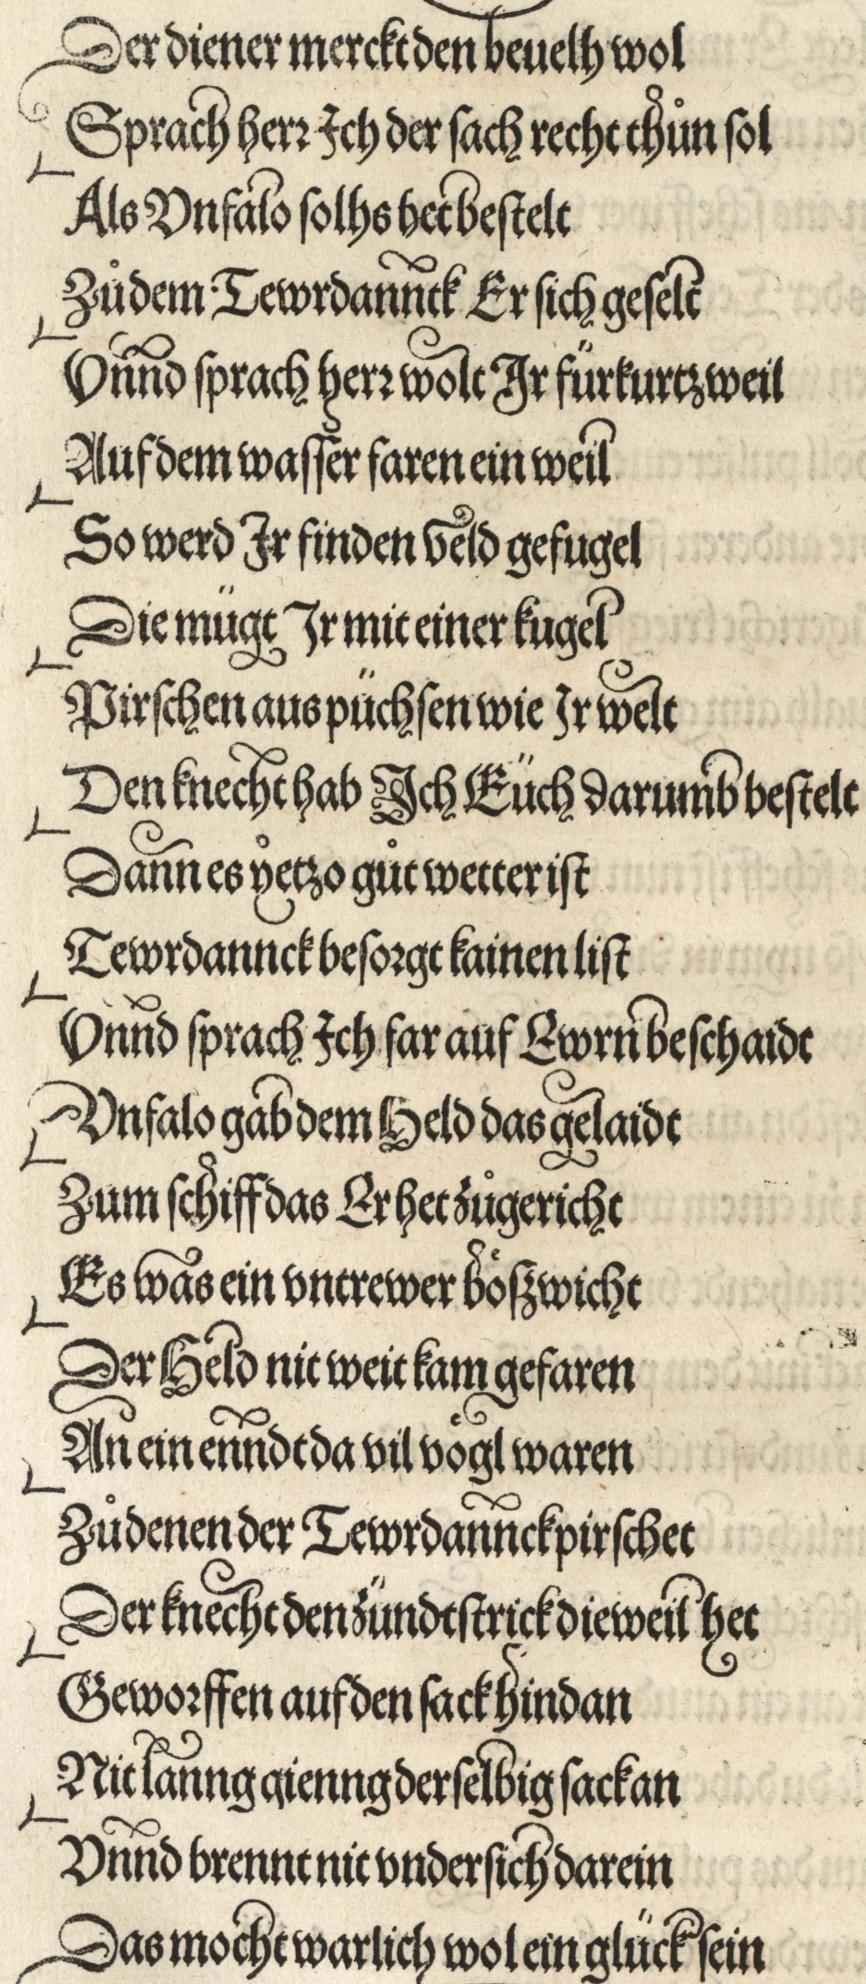 Der diener merckt den beuelh wol
Sprach herr Ich der sach recht thůn sol
Als Vnfalo solhs het bestelt
Zů dem Tewrdannck Er sich geselt
Vnnd sprach herr wolt Ir für kurtzweil
Auf dem wasser faren ein weil
So werd Ir finden veld gefugel
Die mügt Ir mit einer kugel
Pirschen aus püchsen wie Ir welt
Den knecht hab Ich Eüch darumb bestelt
Dann es yetzo gůt wetter ist
Tewrdannck besorgt kainen list
Vnnd sprach Ich far auf Ewrn beschaidt
Vnfalo gab dem Held das gelaidt
Zum schiff das Er het zůgericht
Es was ein vntrewer bößwicht
Der Held nit weit kam gefaren
An ein enndt da vil vögl waren
Zů denen der Tewrdannck pirschet
Der knecht den zündtstrick dieweil het
Geworffen auf den sack hindan
Nit lanng gienng derselbig sack an
Vnnd brennt nit vndersich darein
Das mocht warlich wol ein glück sein